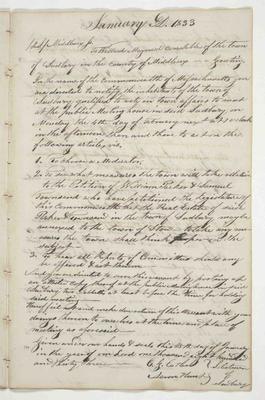 January D. 1833
Middlesex ss.
To William Maynard Constable of the town
of Sudbury in the County of Middlesex — Greeting
In the name of the Commonwealth of Massachusetts you
are directed to notify the inhabitants of the town of
Sudbury qualified to vote in town affairs to meet
at the public Meeting house in said Sudbury on
Monday the 4th day of next at O'clock
in the afternoon then and there to act on the
following articles viz.
1. To choose a Moderator.
2. To see what measures the town will take relative
to the Petition of William & Samuel
who have petitioned the Legislature of
this Commonwealth that the Real Estate of
in the town of Sudbury may be
annexed to the town of Stow. Or take any
measures the town shall think proper on the
subject
3. To hear all Reports of Committees which any
offered & act thereon
And you are directed to serve this warrant by posting up
an attested Copy thereof at the public Meeting house in said
Sudbury at least before the time for holding
said meeting
Hereof fail not and make due return of this Warrant with your
doings thereon to ourselves at the time and place of
meeting as aforesaid
Given under our hands & seals this day of January
in the year of our Lord one thousand eight hundred
and thirty three
Selectmen
of
Sudbury